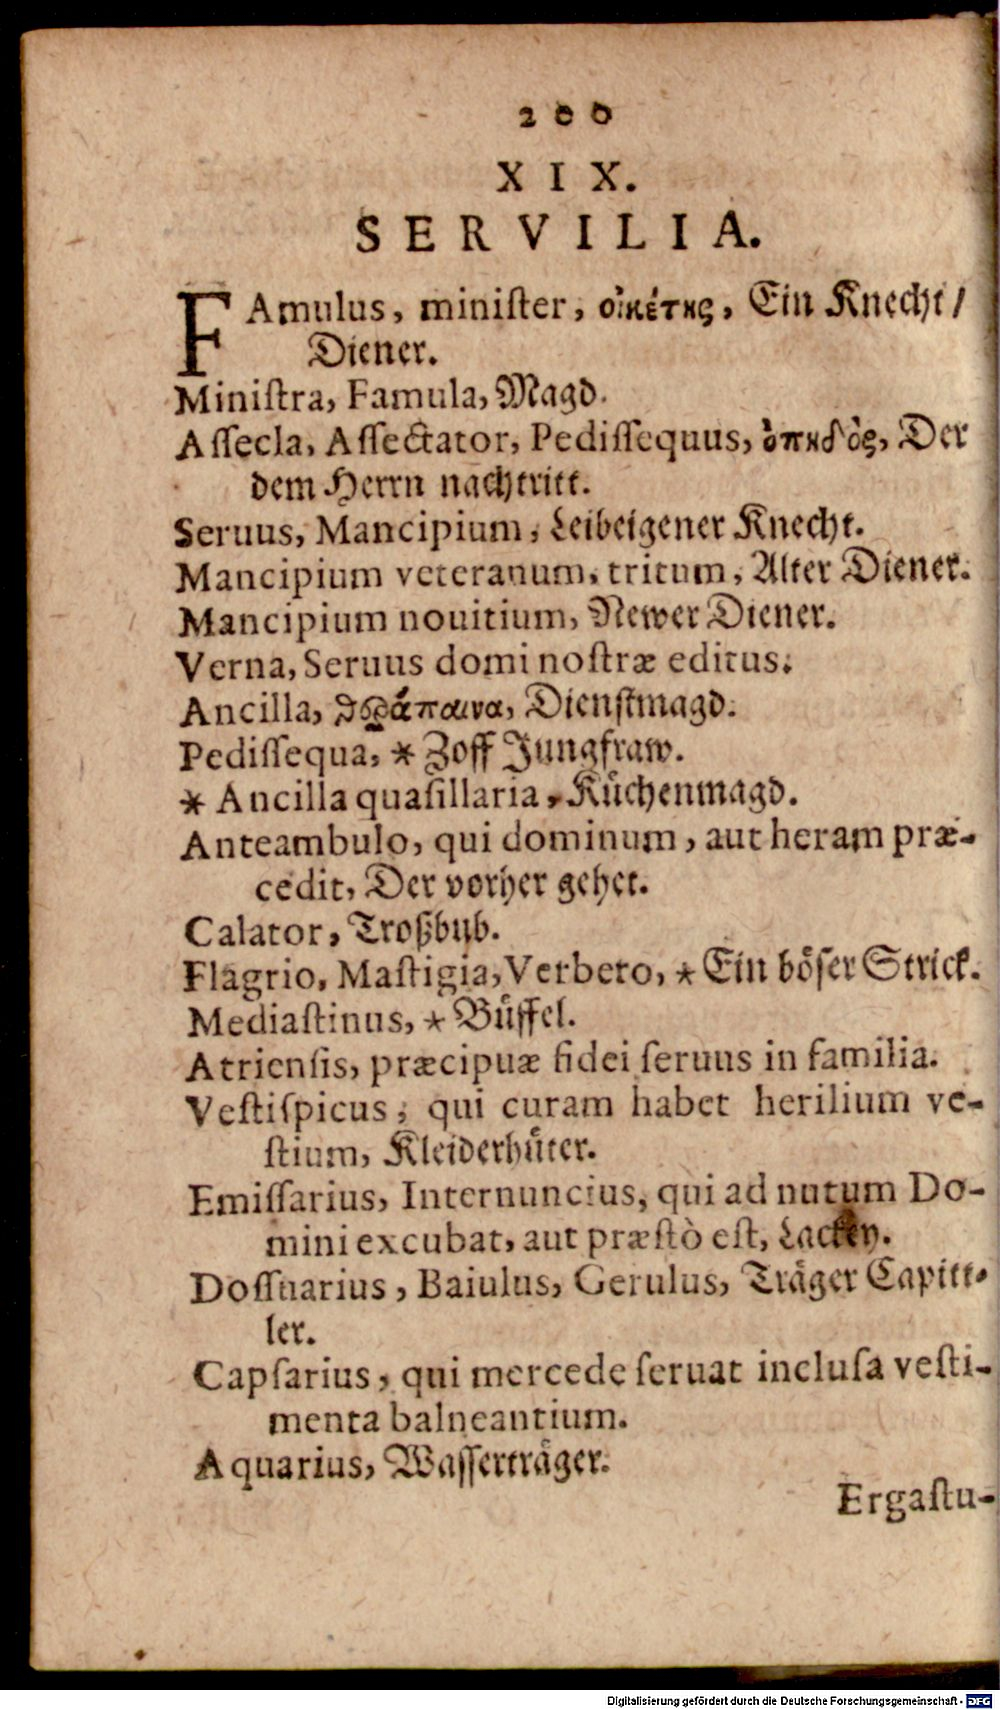 200
XIX.
SERVILIA.
FAmulus, miniſter, οἰκέτης, Ein Knecht/
Diener.
Miniſtra, Famula, Magd.
Aſſecla, Aſſectator, Pediſſequus, ὀπηδὸς, Der
dem Herrn nachtritt.
Seruus, Mancipium, Leibeigener Knecht.
Mancipium veteranum, tritum, Alter Diener.
Mancipium nouitium, Newer Diener.
Verna, Seruus domi noſtræ editus.
Ancilla, θεράπαινα, Dienſtmagd.
Pediſſequa, * Zoff Jungfraw.
* Ancilla quaſillaria, Kuͤchenmagd.
Anteambulo, qui dominum, aut heram præ-
cedit, Der vorher gehet.
Calator, Troßbub.
Flagrio, Maſtigia, Verbero, * Ein boͤſer Strick.
Mediaſtinus, * Buͤffel.
Atrienſis, præcipuæ fidei ſeruus in familia.
Veſtiſpicus, qui curam habet herilium ve-
ſtium, Kleiderhuͤter.
Emiſſarius, Internuncius, qui ad nutum Do-
mini excubat, aut præſtò eſt, Lackey.
Doſſuarius, Baiulus, Gerulus, Traͤger Capitt-
ler.
Capſarius, qui mercede ſeruat incluſa veſti-
menta balneantium.
Aquarius, Waſſertraͤger.
Ergaſtu-
Digitalisierung gefördert durch die Deutsche Forschungsgemeinschaft - DFG